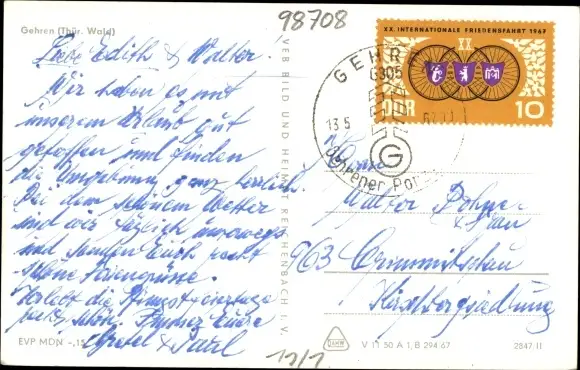 98708
Gehren (Thür. Wald)
Liebe Edith & Walter!
Wir haben es mit
unserem Urlaub gut
getroffen und finden
die Umgebung ganz herrlich.
Bei dem schönem Wetter
sind wir täglich unterwegs
und senden Euch recht
schöne Feriengrüsse.
Verlebt die Pfingstfeiertage
recht schön. Eure
Gretel & Paul
EVP MDN -,15
VEB BILD UND HEIMAT REICHENBACH I. V.
XX. INTERNATIONALE FRIEDENSFAHRT 1967
XX
DDR
10
GEHR
6305
13.5
67.
G
Gehrener Por
Walter
& Frau
963 Crimmitschau
Kirchbergsiedlung
V 11 50 A 1, B 294 67
2847 II
11/1